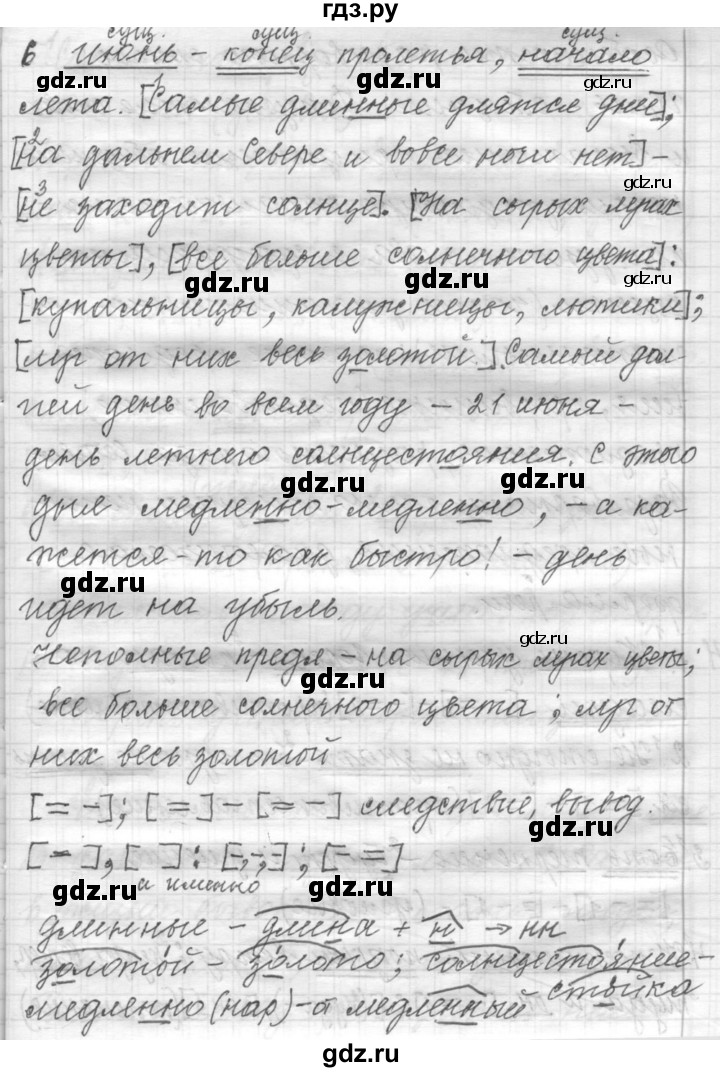 гдз.ру
сущ. сущ. сущ.
6 Июнь - конец пролетья, начало
gdz.ru gdz.ru gdz.ru
лета. [1Самые длинные длятся дни];
[2на дальнем Севере и вовсе ночи нет] -
gdz.ru
[3не заходит солнце]. [На сырых лугах
цветы], [все больше солнечного цвета]:
gdz.ru gdz.ru gdz.ru
[купальницы, калужницы, лютики];
[луг от них весь золотой.] Самый дол-
gdz.ru gdz.ru
гий день во всем году - 21 июня -
день летнего солнцестояния. С этого
gdz.ru gdz.ru
дня медленно-медленно, - а ка-
жется-то как быстро! - день
gdz.ru
идет на убыль.
gdz.ru
Неполные предл - на сырых лугах цветы;
gdz.ru
все больше солнечного цвета; луг от
них весь золотой
[= -]; [ = ] - [= -] следствие, вывод.
gdz.ru
[ - ], [ ] : [-, -, -] ; [- =]
а именно
gdz.ru gdz.ru
длинные - длина + н → нн
золотой - золото; солнцестояние -
стойка
медленно (нар) - от медленный
gdz.ru gdz.ru
gdz.ru